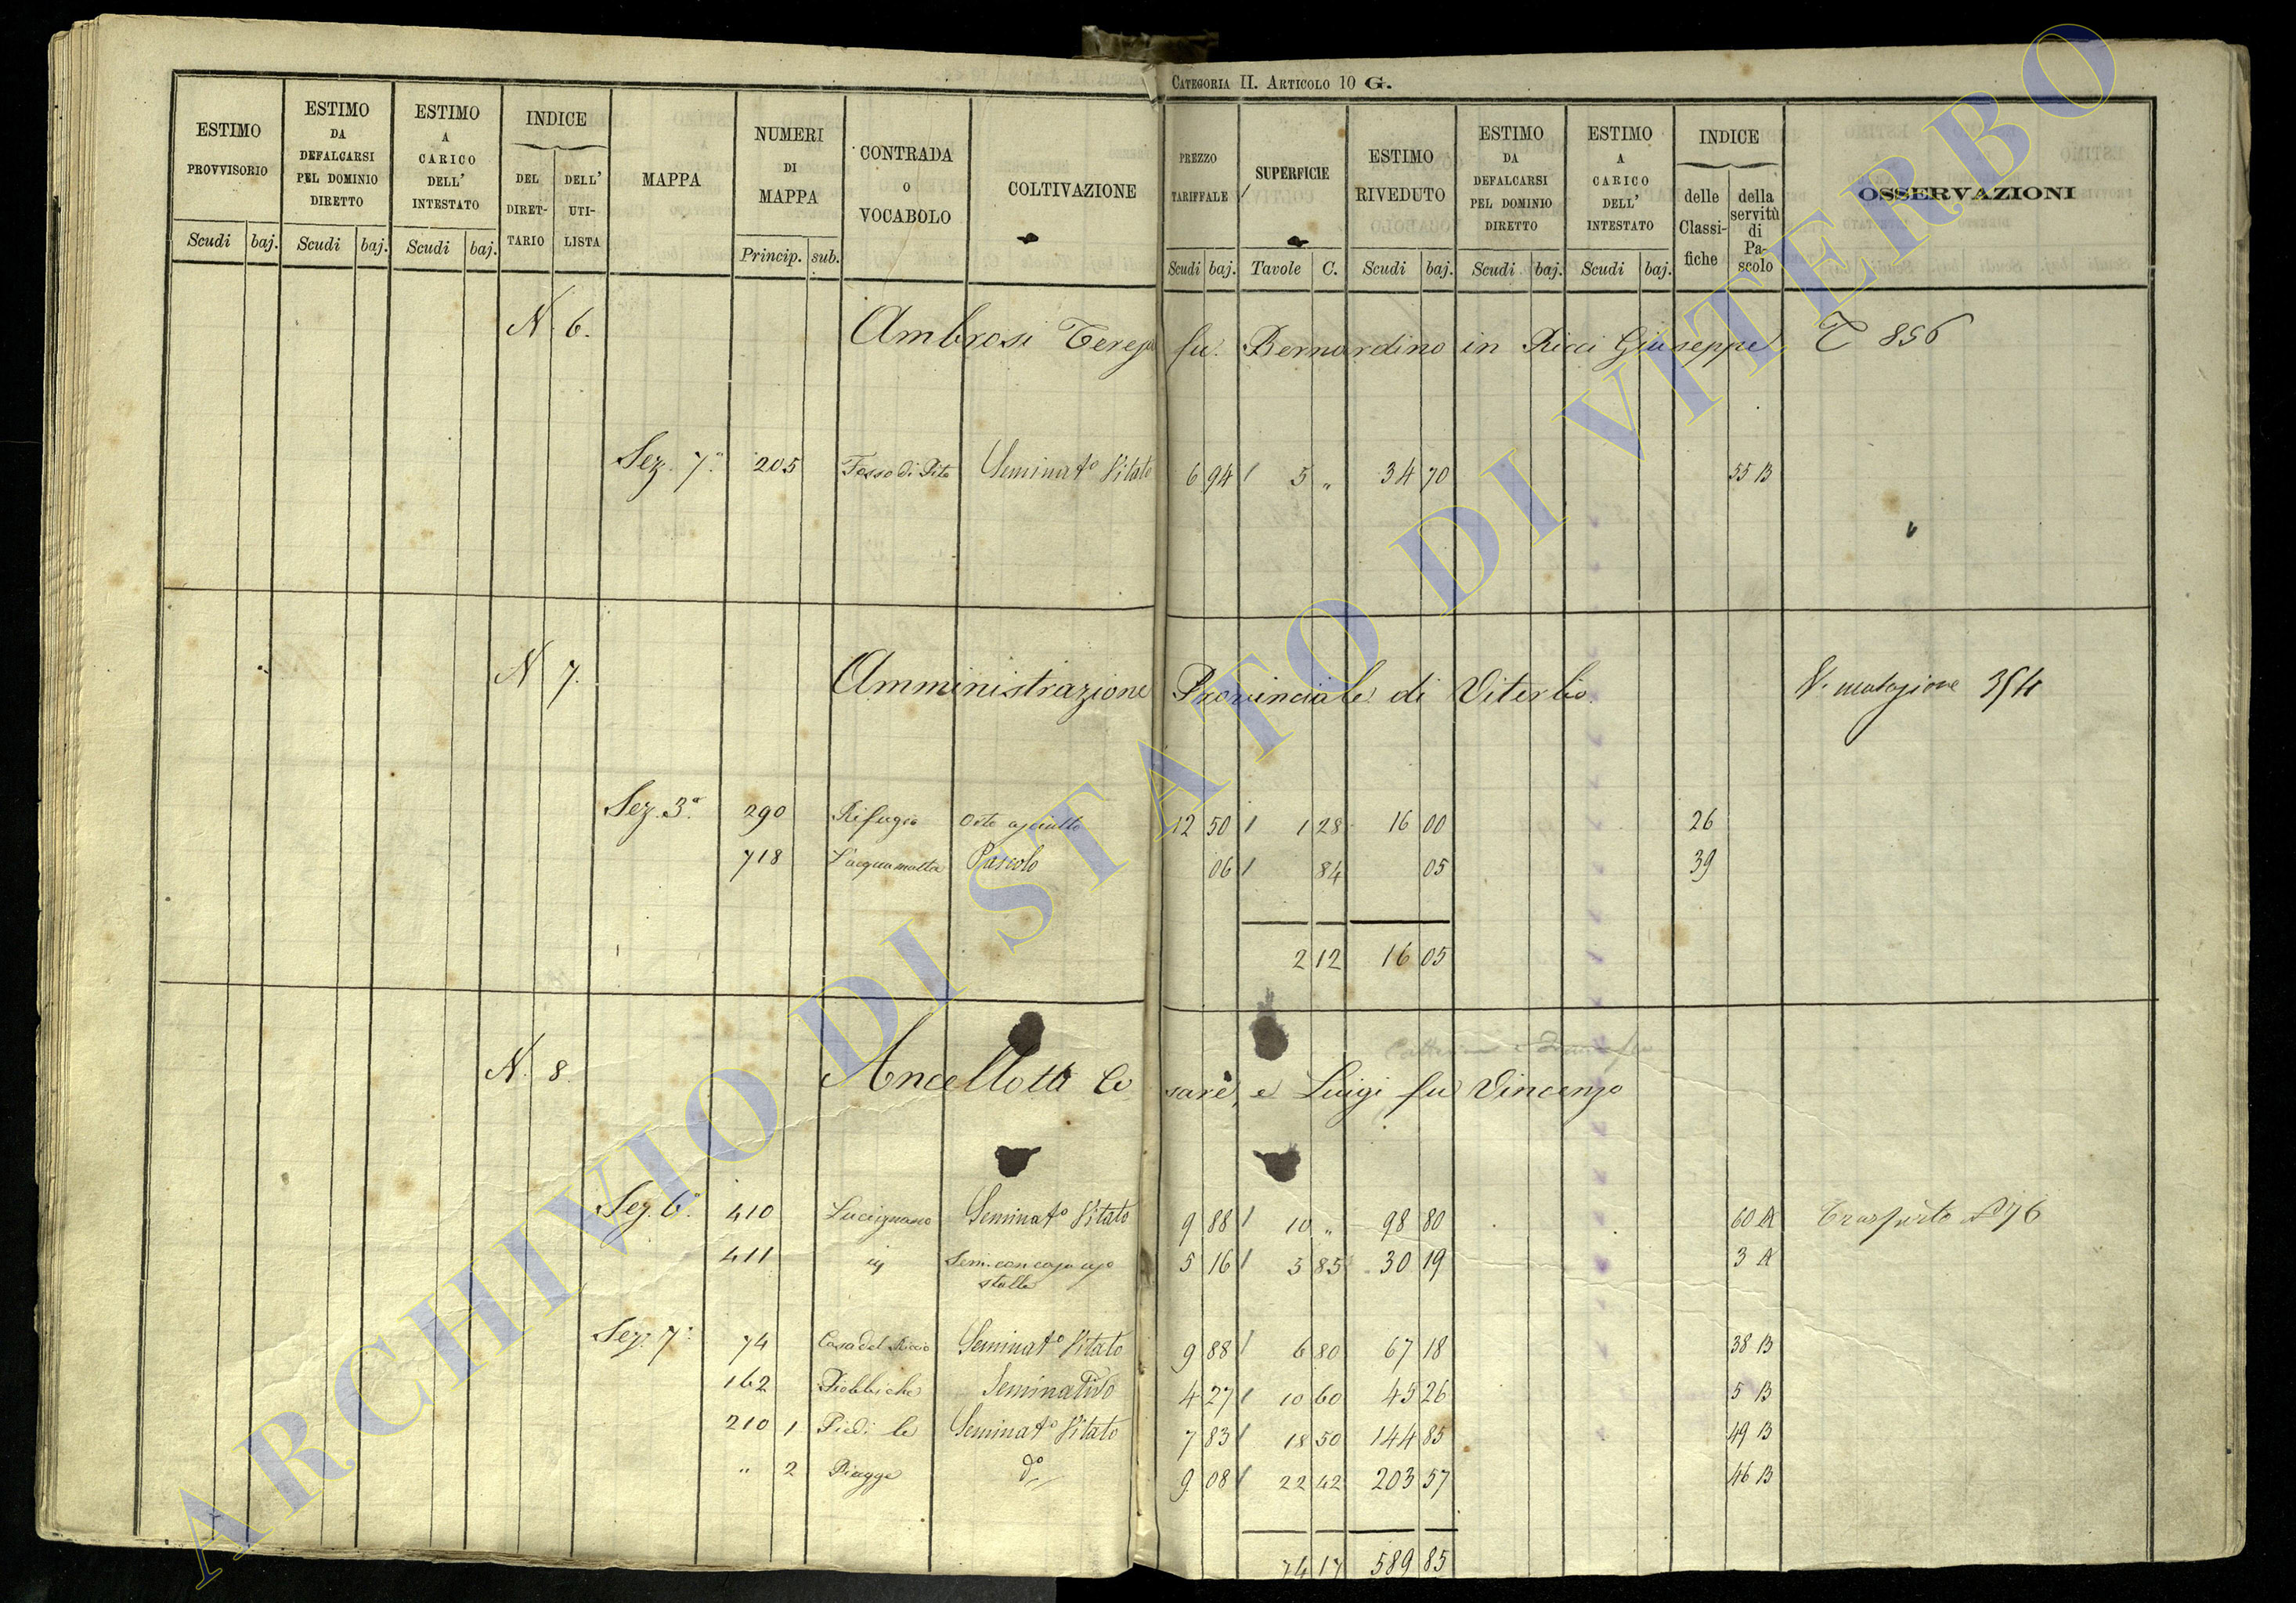 CATEGORIA II. ARTICOLO 10 G.
ESTIMO PROVVISORIO Scudi baj.
ESTIMO DA DEFALCARSI PEL DOMINIO DIRETTO Scudi baj.
ESTIMO A CARICO DELL' INTESTATO Scudi baj.
INDICE DEL DIRET-TARIO DELL' UTI-LISTA
MAPPA
NUMERI DI MAPPA Princip. sub.
CONTRADA O VOCABOLO
COLTIVAZIONE
PREZZO TARIFFALE Scudi baj.
SUPERFICIE Tavole C.
ESTIMO RIVEDUTO Scudi baj.
ESTIMO DA DEFALCARSI PEL DOMINIO DIRETTO Scudi baj.
ESTIMO A CARICO DELL' INTESTATO Scudi baj.
INDICE delle Classi-fiche della servitù di Pa-scolo
OSSERVAZIONI
N. 6. Ambrosi Teresa fu Bernardino in Ricci Giuseppe T 856
Sez. 7ª 205 Fosso di Pite Seminatº Vitato 6 94 5 " 34 70 55 B
N 7. Amministrazione Provinciale di Viterbo V. mutazione 354
Sez. 3ª 290 Rifugio Orto asciutto 12 50 1 28 16 00 26
718 L'acquamatta Pascolo 06 84 05 39
2 12 16 05
N. 8. Ancellotti Cesare, e Luigi fu Vincenzo
Sez. 6ª 410 Lucignano Seminatº Vitato 9 88 10 " 98 80 60 A Trasferito
411 Sem. con casa uso stalla 5 16 5 85 30 19 3 A
Sez. 7ª 74 Casa del Riccio Seminatº Vitato 9 88 6 80 67 18 38 B
162 Piobbiche Seminativo 4 27 10 60 45 26 5 B
210 1 Piedi le Seminatº Vitato 7 83 18 50 144 85 49 B
" 2 Piagge dº 9 08 22 42 203 57 46 B
74 17 589 85
ARCHIVIO DI STATO DI VITERBO